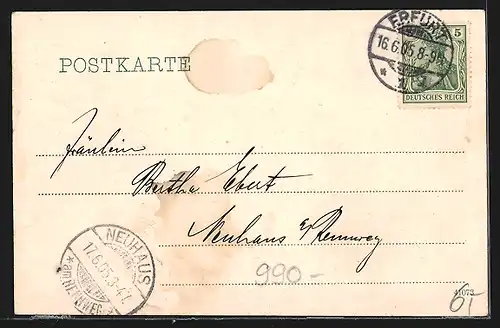 ERFURT
16.6.05. 8-9N.
* 1 *
5
DEUTSCHES REICH
POSTKARTE
Fräulein
Bertha Ebert
Neuhaus a/Rennweg
NEUHAUS
17.6.05. 3-4.
* a. RENNWEG
990-
41073
6.-